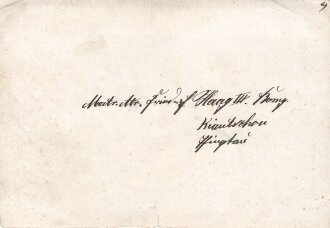 Matr. Art. Friedr. Haag III. Komp.
Kiautschou
Tsingtau